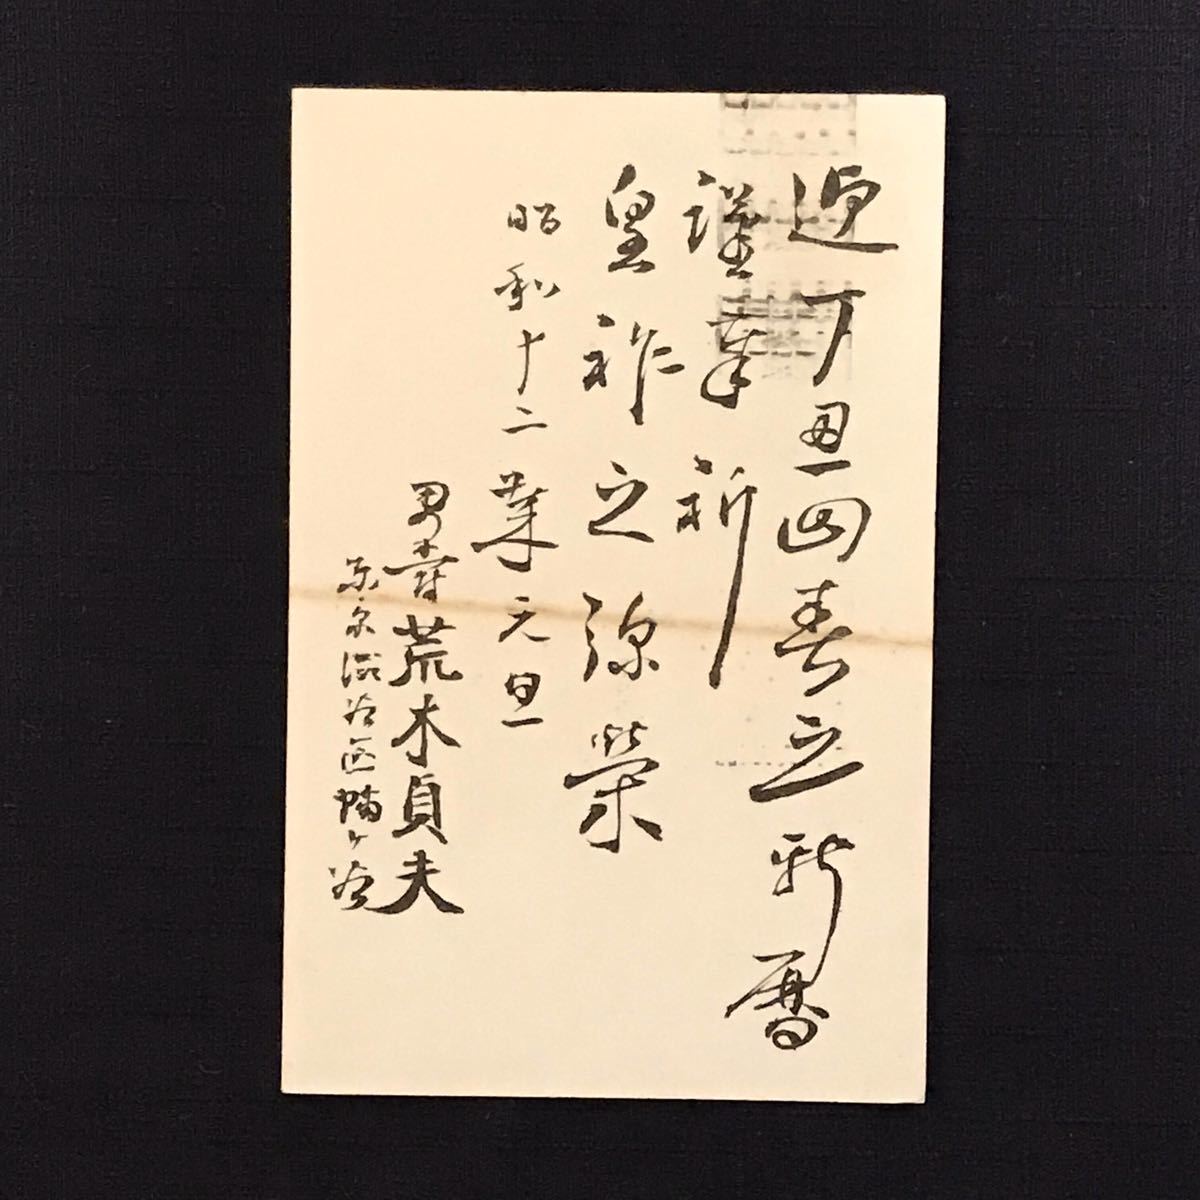 迎丁丑回春之新暦
謹奉祈
皇祚之弥榮
昭和十二年元旦
男爵荒木貞夫
東京渋谷区幡ヶ谷